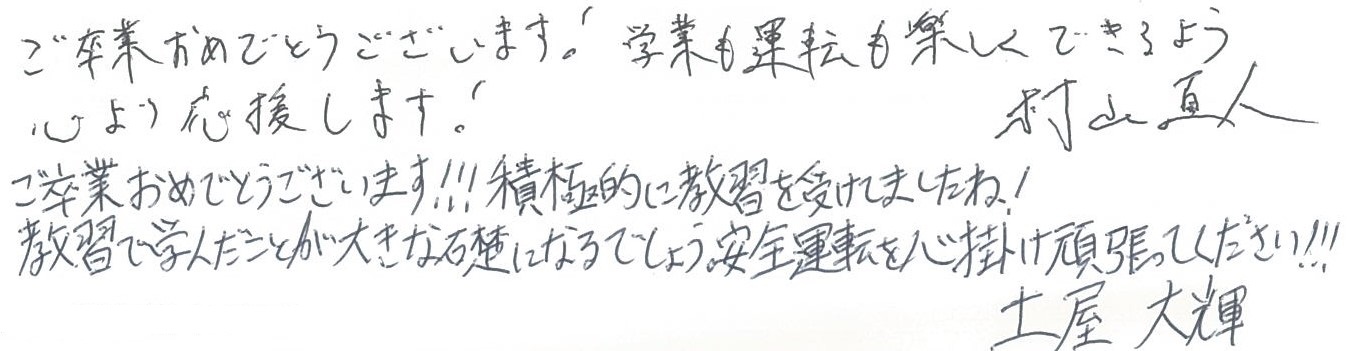 ご卒業おめでとうございます! 学業も運転も楽しくできるよう
心より応援します!
村山直人
ご卒業おめでとうございます!!!積極的に教習を受けてましたね!
教習で学んだことが大きな礎になるでしょう。安全運転を心掛け頑張ってください!!!
土屋 大輝